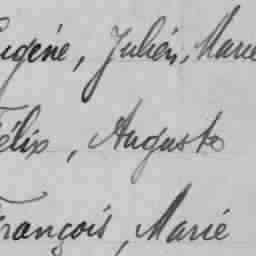 Eugéne, Julién, Marie
Félix, Auguste
François, Marié